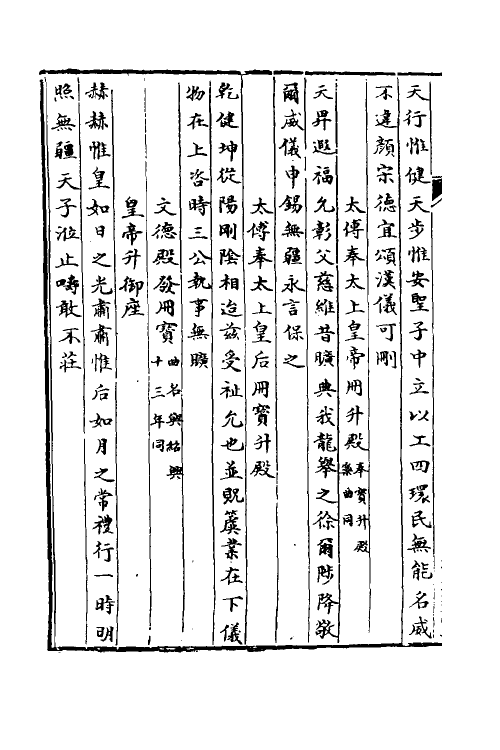 天行惟健天步惟安聖子中立以工四環民無能名威
不違顏宗德宜頌漢儀可刪
太傅奉太上皇帝冊升殿奉寳升殿樂曲同
天昇遐福允彰父慈維昔曠典我龍舉之徐爾陟降敬
爾威儀申錫無疆永言保之
太傅奉太上皇后冊寳升殿
乾健坤從陽剛陰相迨兹受祉允也並貺簴業在下儀
物在上咨時三公執事無曠
文德殿發冊寳曲名與紹興十三年同
皇帝升御座
赫赫惟皇如日之光肅肅惟后如月之常禮行一時明
照無疆天子涖止疇敢不莊